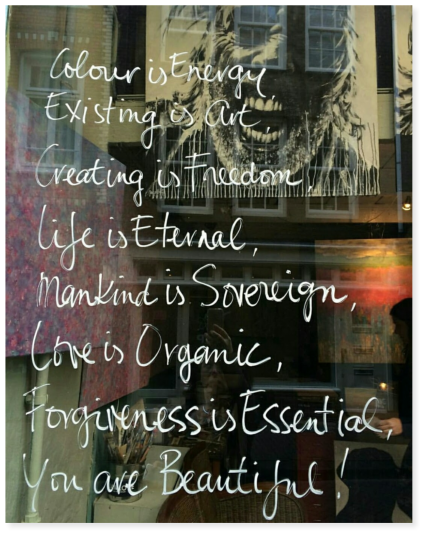 Colour is Energy,
Existing is Art,
Creating is Freedom,
Life is Eternal,
Mankind is Sovereign,
Love is Organic,
Forgiveness is Essential,
You are Beautiful!